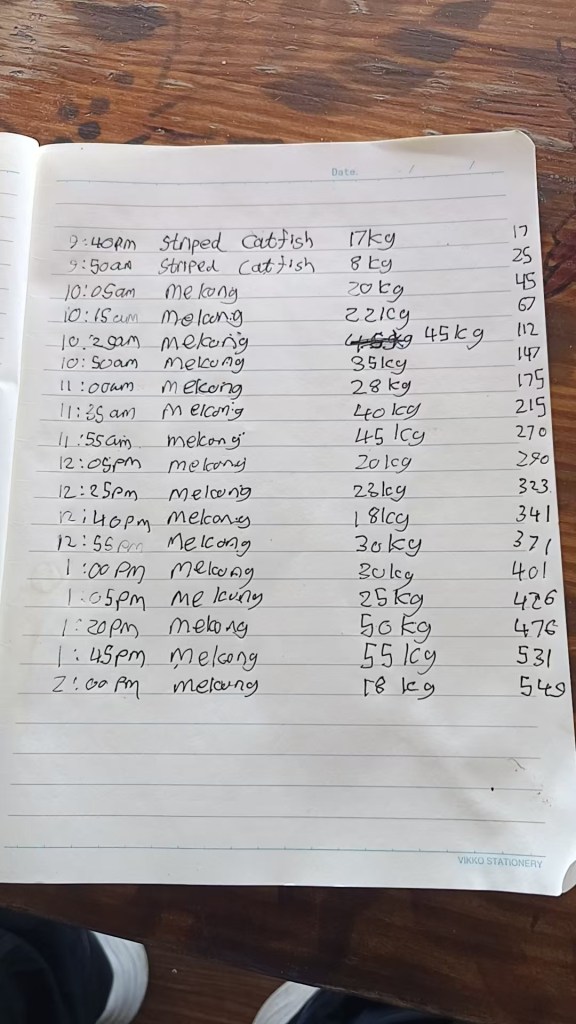 Date. / /
9:40pm Striped Catfish 17kg 17
9:50am Striped Catfish 8kg 25
10:05am mekong 20kg 45
10:15am mekong 22kg 67
10:25am mekong 45kg 112
10:50am mekong 35kg 147
11:00am mekong 28kg 175
11:35am mekong 40kg 215
11:55am mekong 45kg 270
12:05pm mekong 20kg 290
12:25pm mekong 23kg 323
12:40pm mekong 18kg 341
12:55pm mekong 30kg 371
1:00pm mekong 30kg 401
1:05pm mekong 25kg 426
1:20pm mekong 50kg 476
1:45pm mekong 55kg 531
2:00pm mekong 18kg 549
VIKKO STATIONERY